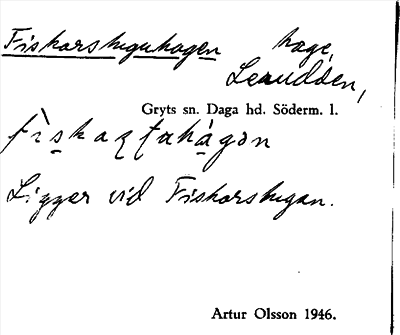 Fiskarstuguhagen hage,
Leaudden,
Gryts sn. Daga hd. Söderm. l.
Ligger vid Fiskarstugan.
Artur Olsson 1946.